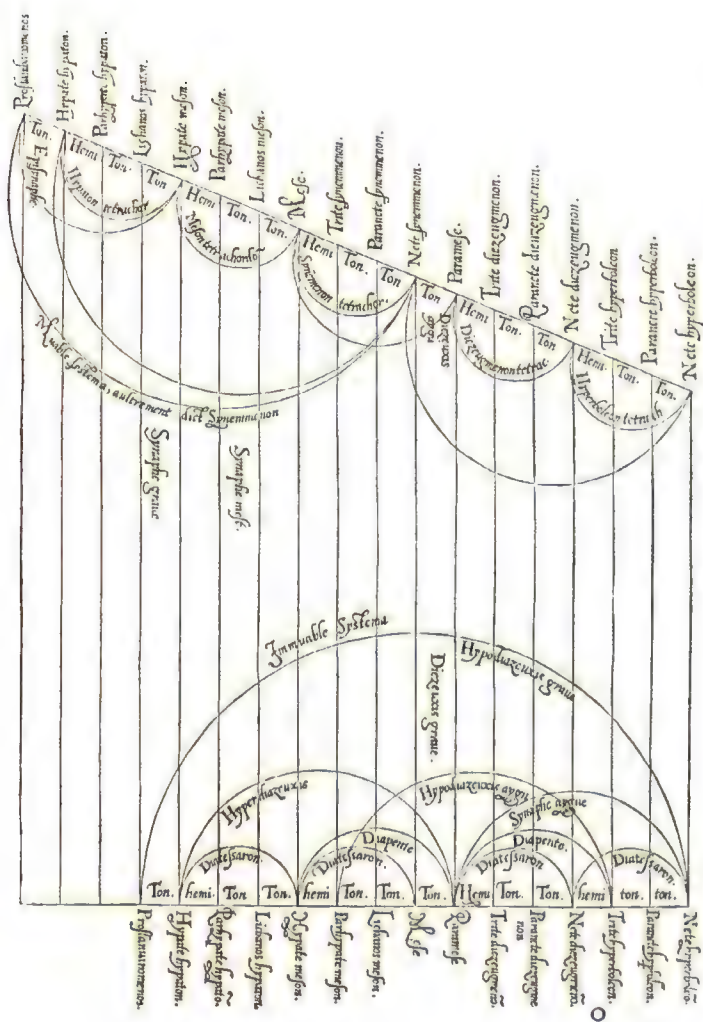 Proslambanomenos
Hypate hypaton.
Parhypate hypaton.
Lychanos hypaton.
Hypate meson.
Parhypate meson.
Lichanos meson.
Mese.
Trite synemmenon.
Paranete synemmenon.
Nete synemmenon
Paramese.
Trite diezeugmenon.
Paranete diezeugmenon.
Nete diezeugmenon.
Trite hyperboleon.
Paranete hyperboleon.
Nete hyperboleon.
Ton.
Hemi
Ton.
Ton
Hemi
Ton.
Ton.
Hemi
Ton.
Ton
Ton
Hemi
Ton.
Ton
Hemi.
Ton.
Ton.
Hypaton tetrachor
Meson tetrachordo
Synemenon tetrachor.
Diezeugmenon tetrac.
Hyperboleon tetrach
Muable systema, aultrement dict Synemmenon
Synaphe graue
Synaphe mese.
Immuable Systema
Hypodiazeuxis graue
Diezeuxis graue.
Hyperdiazeuxis
Hypodiazeuxis aygu
Synaphe aygue
Diatessaron.
Diapente
Diatessaron.
Diapente.
Diatessaron
Diatessaron.
Ton.
hemi.
Ton
Ton.
hemi
Ton.
Ton.
Ton.
Hemi
Ton.
Ton.
hemi
ton.
ton.
Hypate hypaton.
Lichanos hypaton.
Hypate meson.
Parhypate meson.
Lichanos meson.
Mese
Paramese
Trite hyperboleon.
O